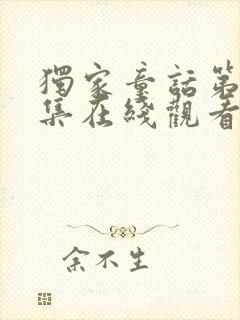 獨家童話第
集在綫觀看
余不生